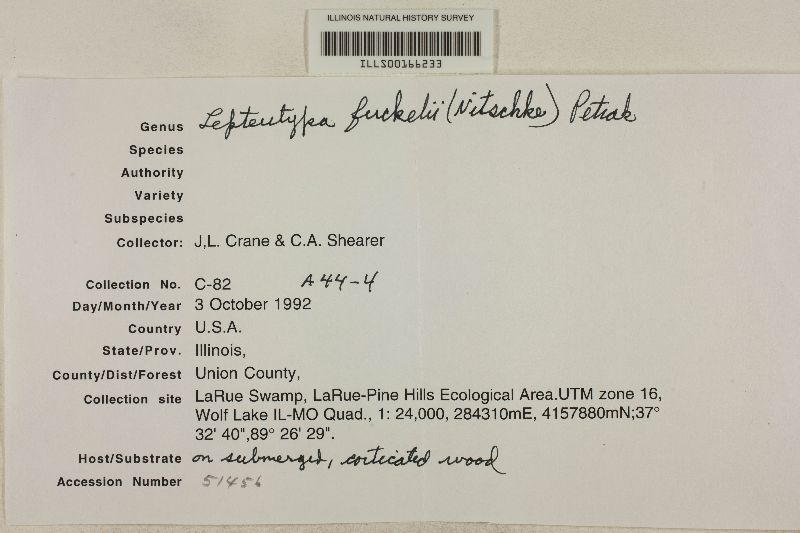 ILLINOIS NATURAL HISTORY SURVEY
ILLS00166233
Genus Lepteutypa fuckelii (Nitschke) Petrak
Species
Authority
Variety
Subspecies
Collector: J,L. Crane & C.A. Shearer
Collection No. C-82 A44-4
Day/Month/Year 3 October 1992
Country U.S.A.
State/Prov. Illinois,
County/Dist/Forest Union County,
Collection site LaRue Swamp, LaRue-Pine Hills Ecological Area.UTM zone 16,
Wolf Lake IL-MO Quad., 1: 24,000, 284310mE, 4157880mN;37°
32' 40",89° 26' 29".
Host/Substrate on submerged, corticated wood
Accession Number 51456